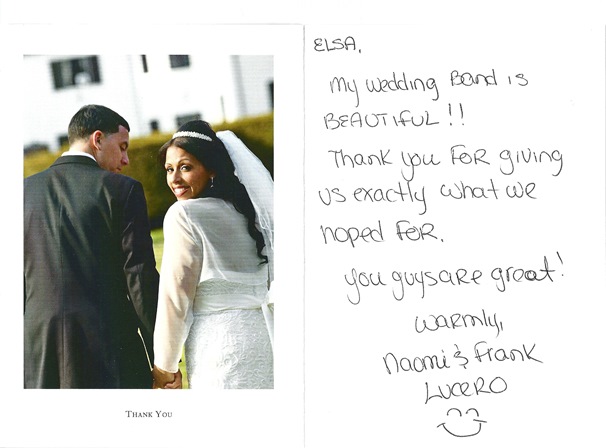 THANK YOU
ELSA,
My wedding Band is
BEAUTIFUL!!
Thank you FOR giving
us exactly what we
hoped FOR.
you guys are great!
warmly,
Naomi & Frank
LUCERO